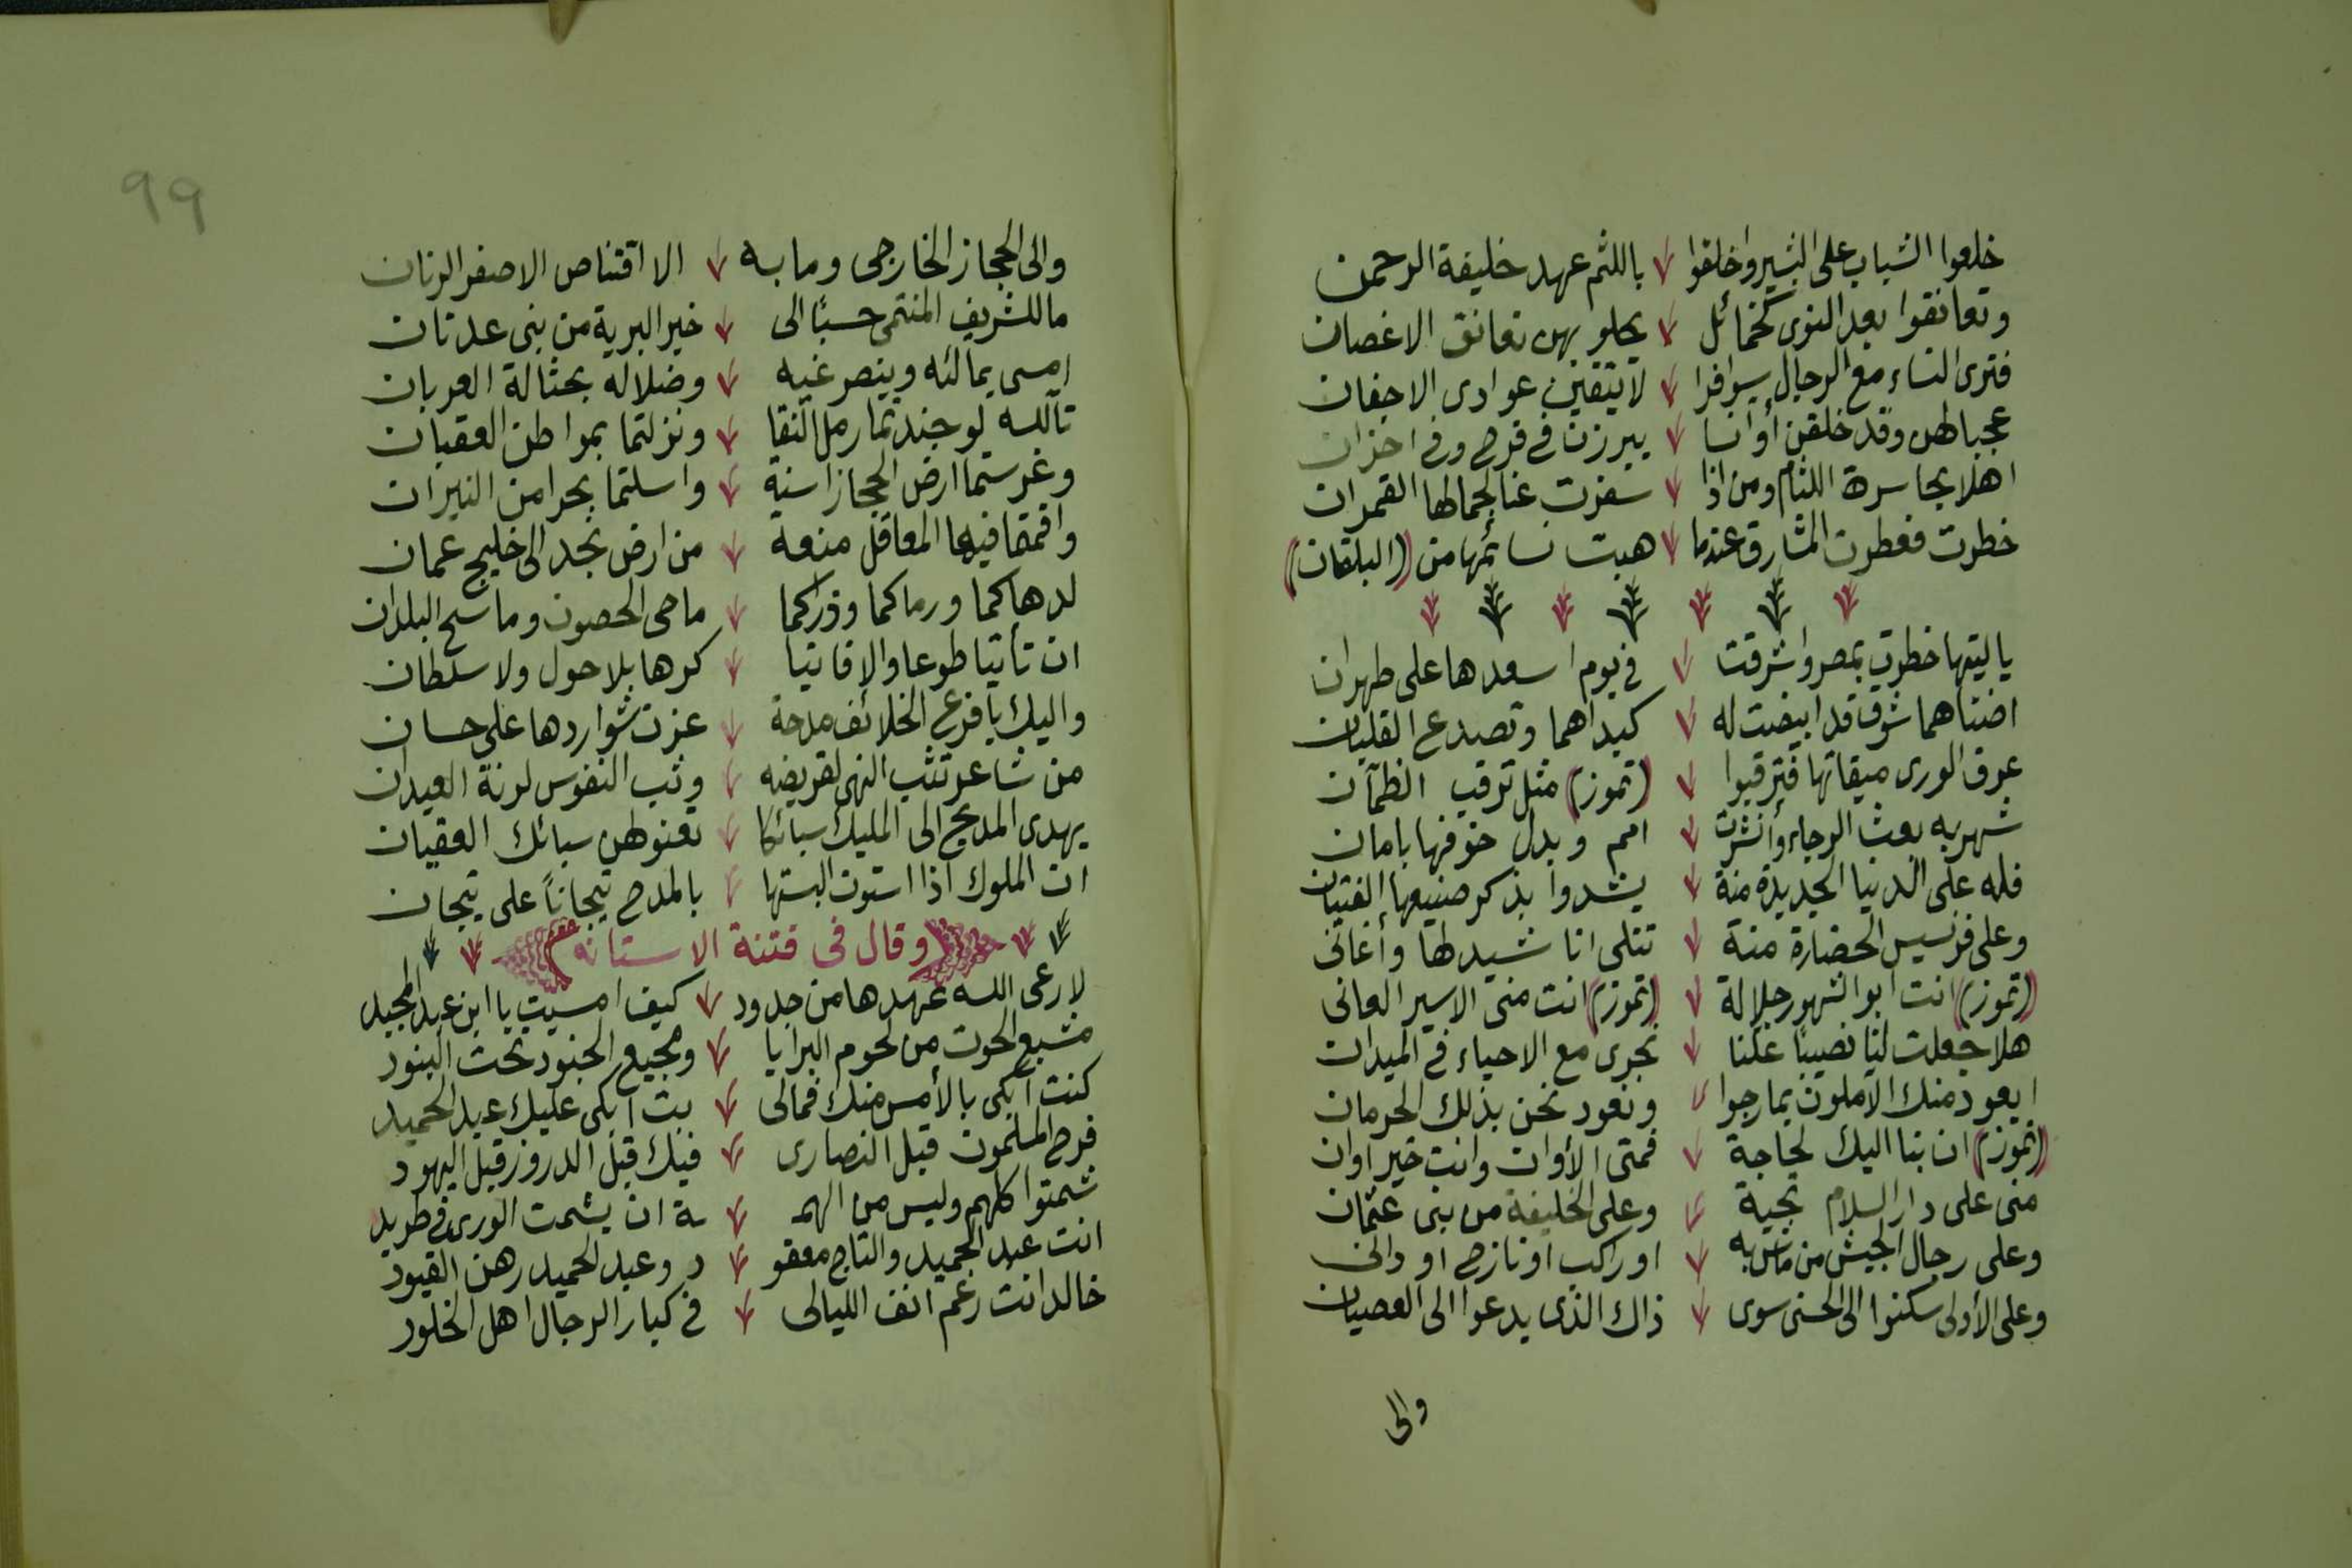 خلعوا الشباب على البشير واخلقوا باللثم عهد خليفة الرحمن
وتعانقوا بعد النوى كخمائل يحلو بهن تعانق الاغصان
فترى النساء مع الرجال سوافرا لا يتقين عوادى الاجفان
عجبا لهن وقد خلقن أوانسا يبرزن في فرح وفي احزان
اهلا بحاسرة اللثام ومن اذا سفرت عنا لجمالها القمران
خطرت فعطرت المشارق عندما هبت نسائمها من (البلقان)
يا ليتها خطرت بمصر واشرقت في يوم اسعدها على طهران
اضناهما شوق قد ابيضت له كبداهما وتصدع القلبان
عرف الورى ميقاتها فترقبوا (تموز) مثل ترقب الظمآن
شهر به بعث الرجاء وأنشرت امم وبدل خوفها بامان
فله على الدنيا الجديدة منة يشدوا بذكر صنيعها الفتيان
وعلى فرنسيس الحضارة منة تتلى اناشيد لها وأغانى
(تموز) انت ابو الشهور جلالة (تموز) انت منى الاسير العانى
هلا جعلت لنا نصيبا علنا نجرى مع الاحياء في الميدان
ايعود منك الآملون بما رجوا ونعود نحن بذلك الحرمان
(تموز) ان بنا اليك لحاجة فمتى الأوان وانت خير اوان
منى على دار السلام تحية وعلى الخليفة من بنى عثمان
وعلى رجال الجيش من ماش به او راكب او نازح او دانى
وعلى الأولى سكنوا الى الحسنى سوى ذاك الذى يدعوا الى العصيان
والى
99
والى الحجاز الخارجى وما به الا اقتناص الاصفر الرنان
ما للشريف المنتمى حسبًا الى خير البرية من بنى عدنان
امسى يمالئه وينصر غيه وضلاله بحثالة العربان
تالله لو جندتما رمل النقا ونزلتما بمواطن العقبان
وغرستما ارض الحجاز اسنة واسلتما بحرا من النيران
واقمتما فيها المعاقل منعة من ارض نجد الى خليج عمان
لدهاكما ورماكما وذراكما ماحى الحصون وماسح البلدان
ان تأتيا طوعا والا فاتيا كرها بلا حول ولا سلطان
واليك يا فرع الخلائف مدحة عزت شواردها على حسان
من شاعر تثب النهى لقريضه وثب النفوس لرنة العيدان
يهدى المديح الى المليك سبائكا تعنو لهن سبائك العقيان
ان الملوك اذا استوت البستها بالمدح تيجاناً على تيجان
(وقال فى فتنة الاستانه)
لا رعى الله عهدها من جدود كيف امسيت يا ابن عبد المجيد
مشبع الحوت من لحوم البرايا ومجيع الجنود تحت البنود
كنت أبكى بالأمس منك فمالى بت أبكى عليك عبد الحميد
فرح المسلمون قبل النصارى فيك قبل الدروز قبل اليهود
شمتوا كلهم وليس من الهمـ ـة ان يشمت الورى في طريد
انت عبد الحميد والتاج معقو د وعبد الحميد رهن القيود
خالد انت رغم انف الليالى في كبار الرجال اهل الخلود